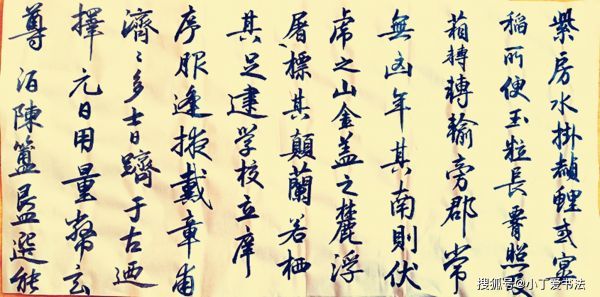 紫房水掛赬鯉或
稻所便玉粒長照
箱轉轉輸旁郡常
無凶年其南則伏
虎之山金盖之麓浮
屠標其顛蘭若栖
其足建学校立庠
序服逢掖戴章甫
濟〻多士日躋于古迺
擇元日用量幣玄
尊酒陳簠簋選能
搜狐号@小丁爱书法